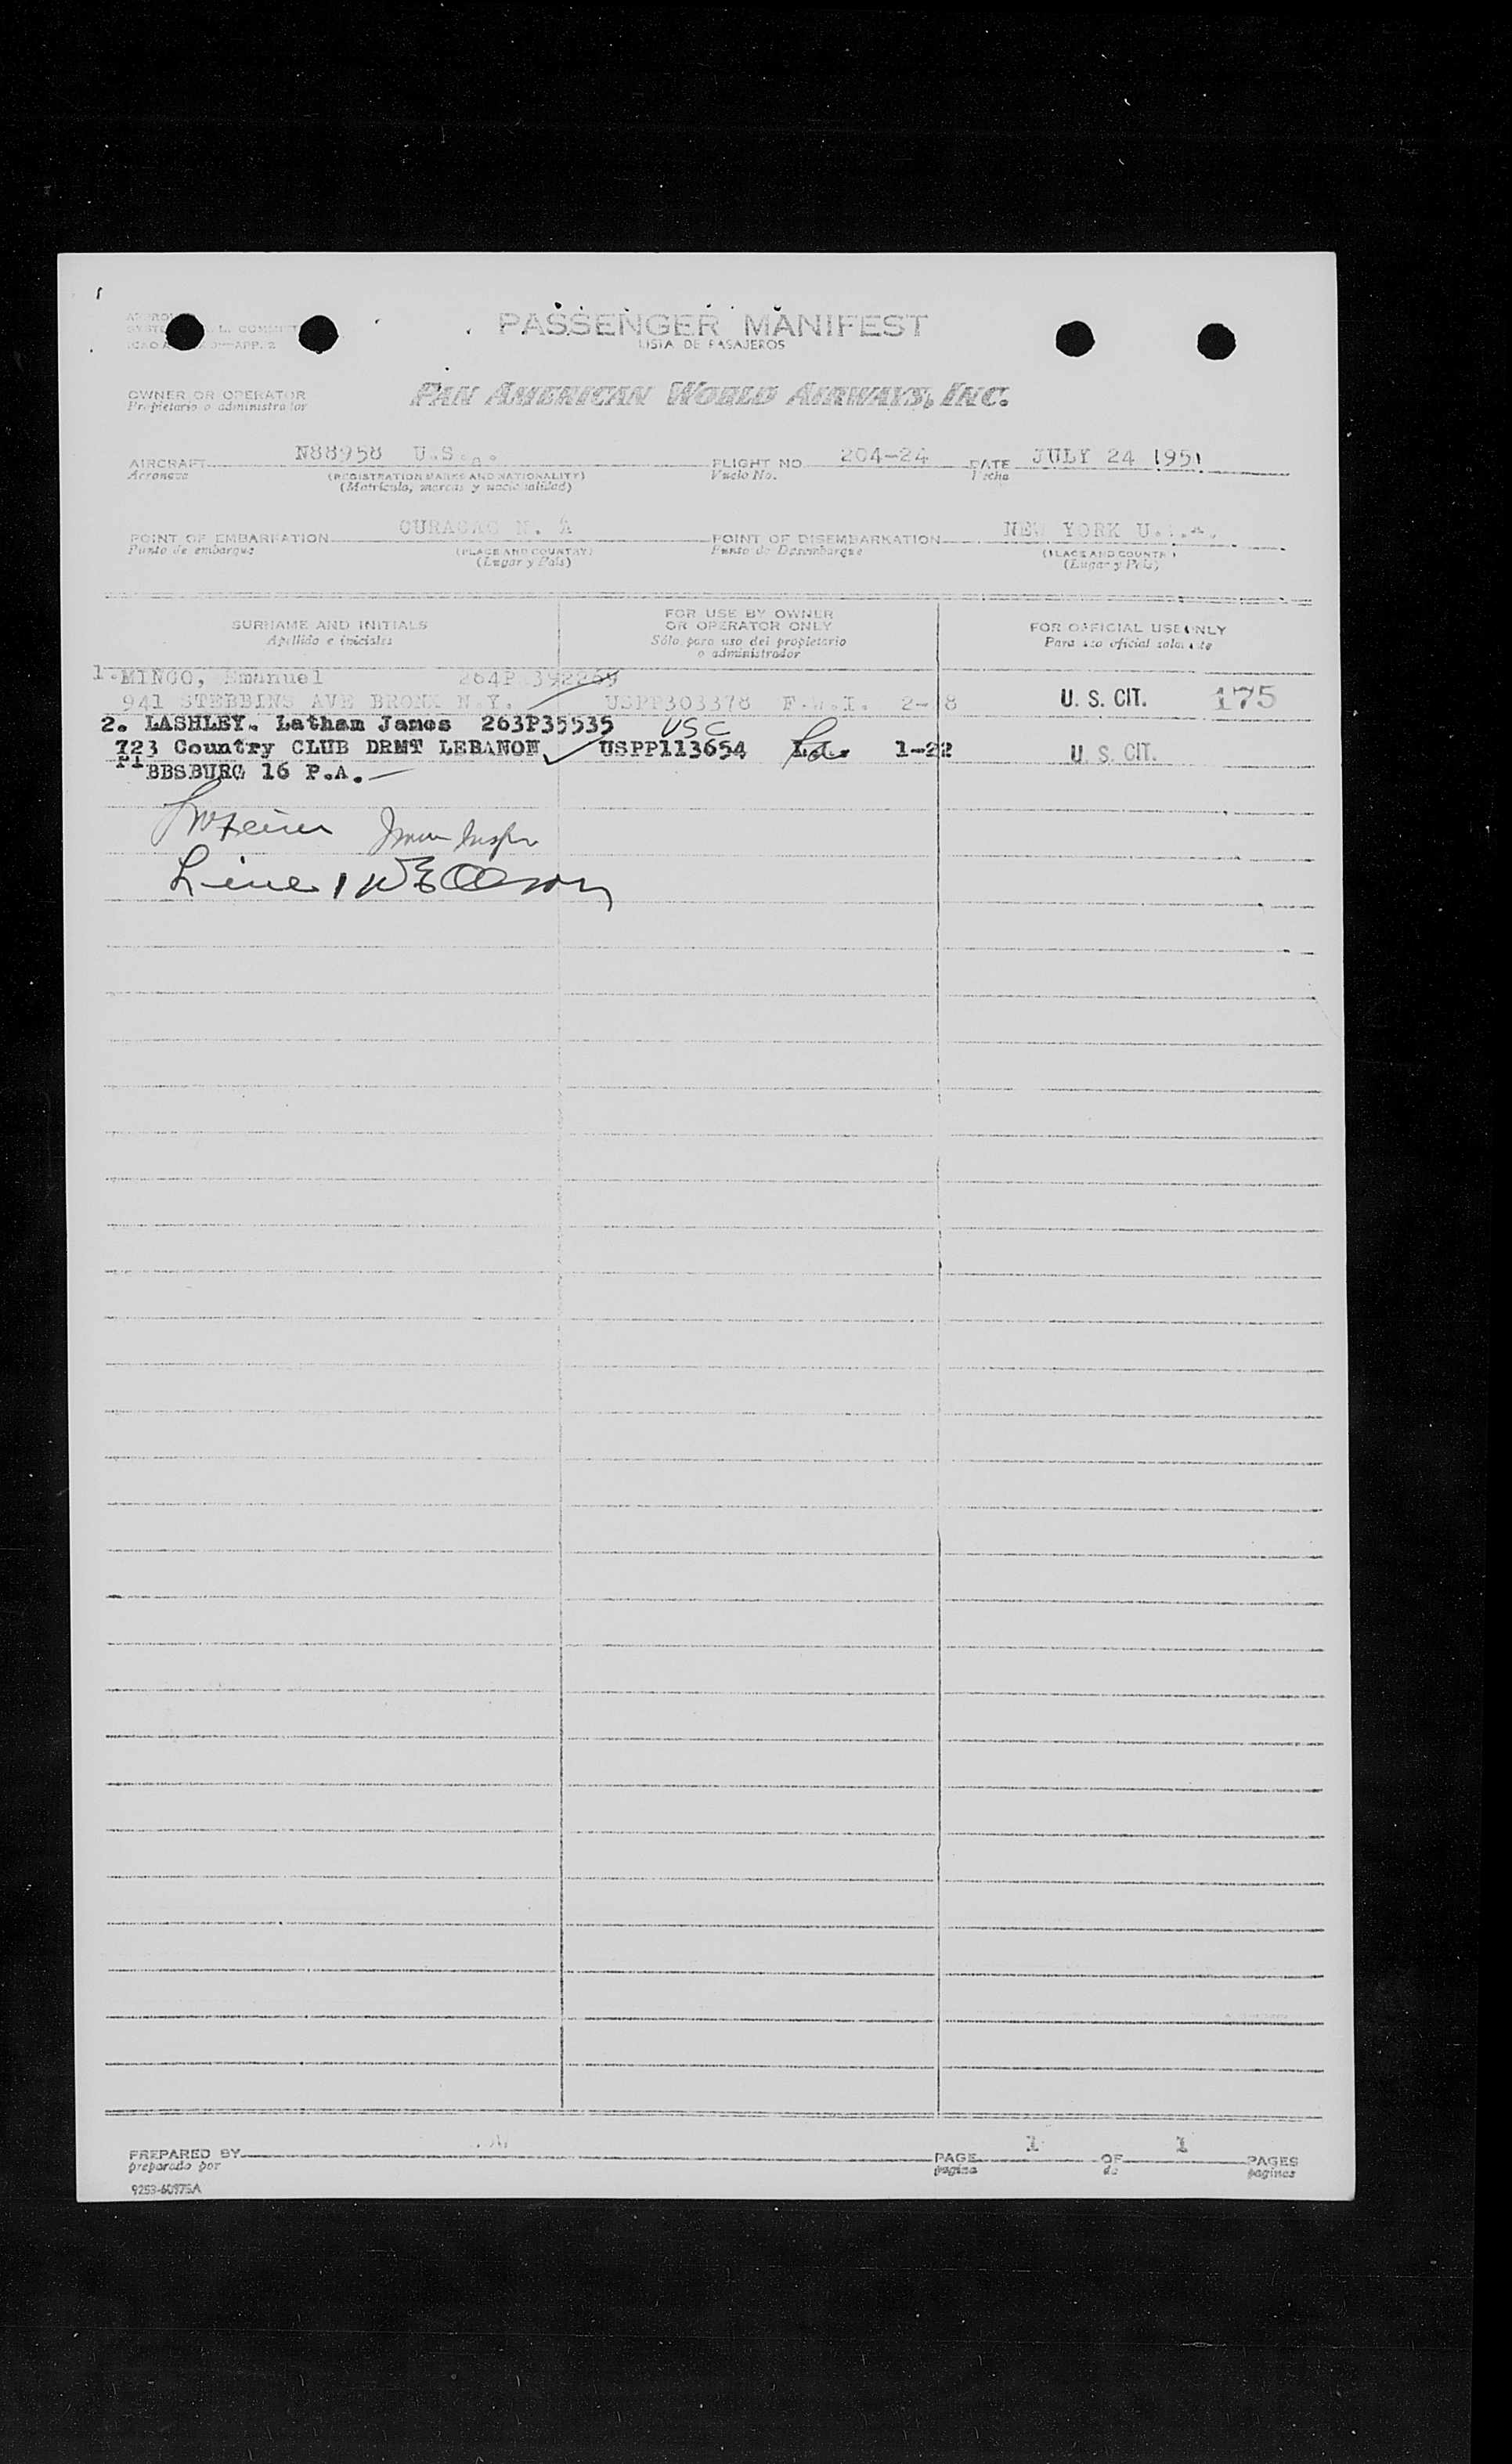 PASSENGER MANIFEST
LISTA DE PASAJEROS
OWNER OR OPERATOR
Propietario o administrador
PAN AMERICAN WORLD AIRWAYS, INC.
AIRCRAFT N88958 U.S.A. FLIGHT NO. 204-24 DATE JULY 24 1951
Aeronave (REGISTRATION MARKS AND NATIONALITY) Vuelo No. Fecha
(Matricula, marcas y nacionalidad)
POINT OF EMBARKATION CURACAO N. A POINT OF DISEMBARKATION NEW YORK U.S.A.
Punto de embarque (PLACE AND COUNTRY) Punto de Desembarque (PLACE AND COUNTRY)
(Lugar y País) (Lugar y País)
SURNAME AND INITIALS
Apellido e iniciales
FOR USE BY OWNER
OR OPERATOR ONLY
Sólo para uso del propietario
o administrador
FOR OFFICIAL USE ONLY
Para uso oficial solamente
1. MINGO, Emanuel 264P 392269
941 STEBBINS AVE BRONX N.Y. USPP303378 F.W.I. 2-18 U. S. CIT. 175
2. LASHLEY. Latham James 263P35535 USC
723 Country CLUB DRMT LEBANON USPP113654 1-22 U. S. CIT.
PIBBSBURG 16 P.A.
Immn Inspr
Line 1
PREPARED BY PAGE 1 OF 1 PAGES
preparado por pagina de paginas
9253-60975A